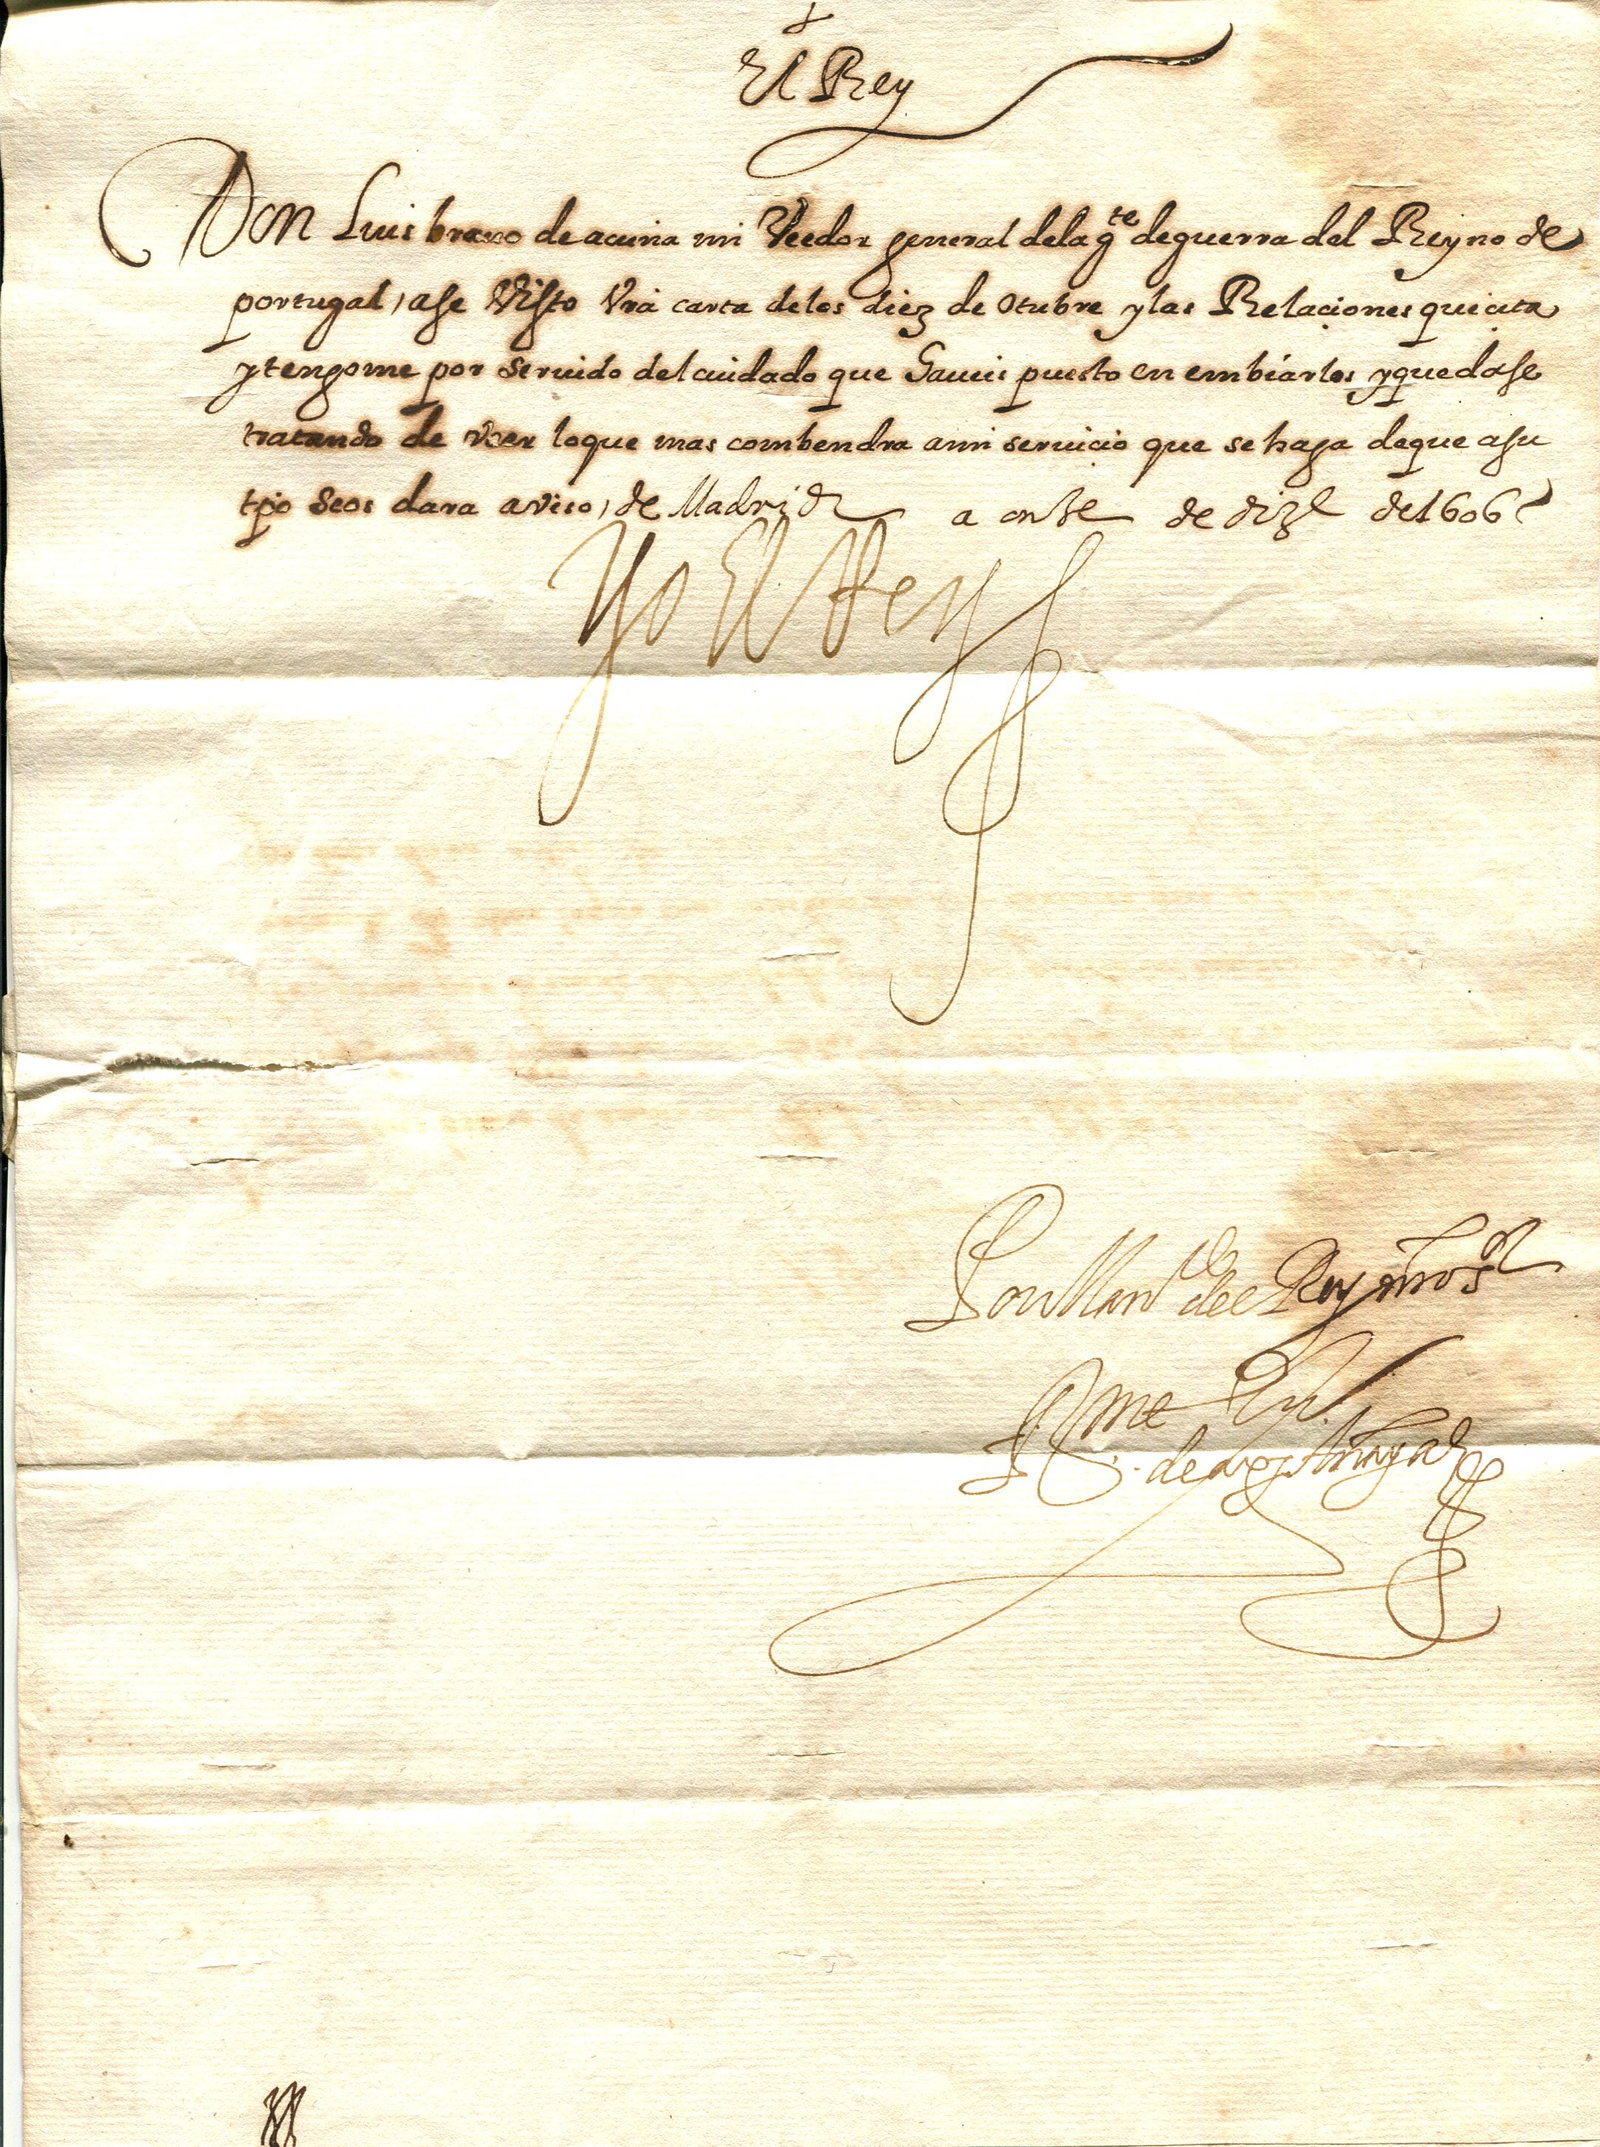 El Rey
Don Luis brauo de acuña mi Veedor general dela g.te de guerra del Reyno de
portugal, ase Visto Vrã carta de los diez de Otubre y las Relaciones que cita
y tengome por seruido del cuidado que haueis puesto en embiarlos y quedase
tratando de veer lo que mas combendra a mi seruicio que se haga de que a su
tpõ se os dara aviso, de Madrid a onse de diz.e de 1606
Yo El Rey
Por Man.do del Rey nro s.or